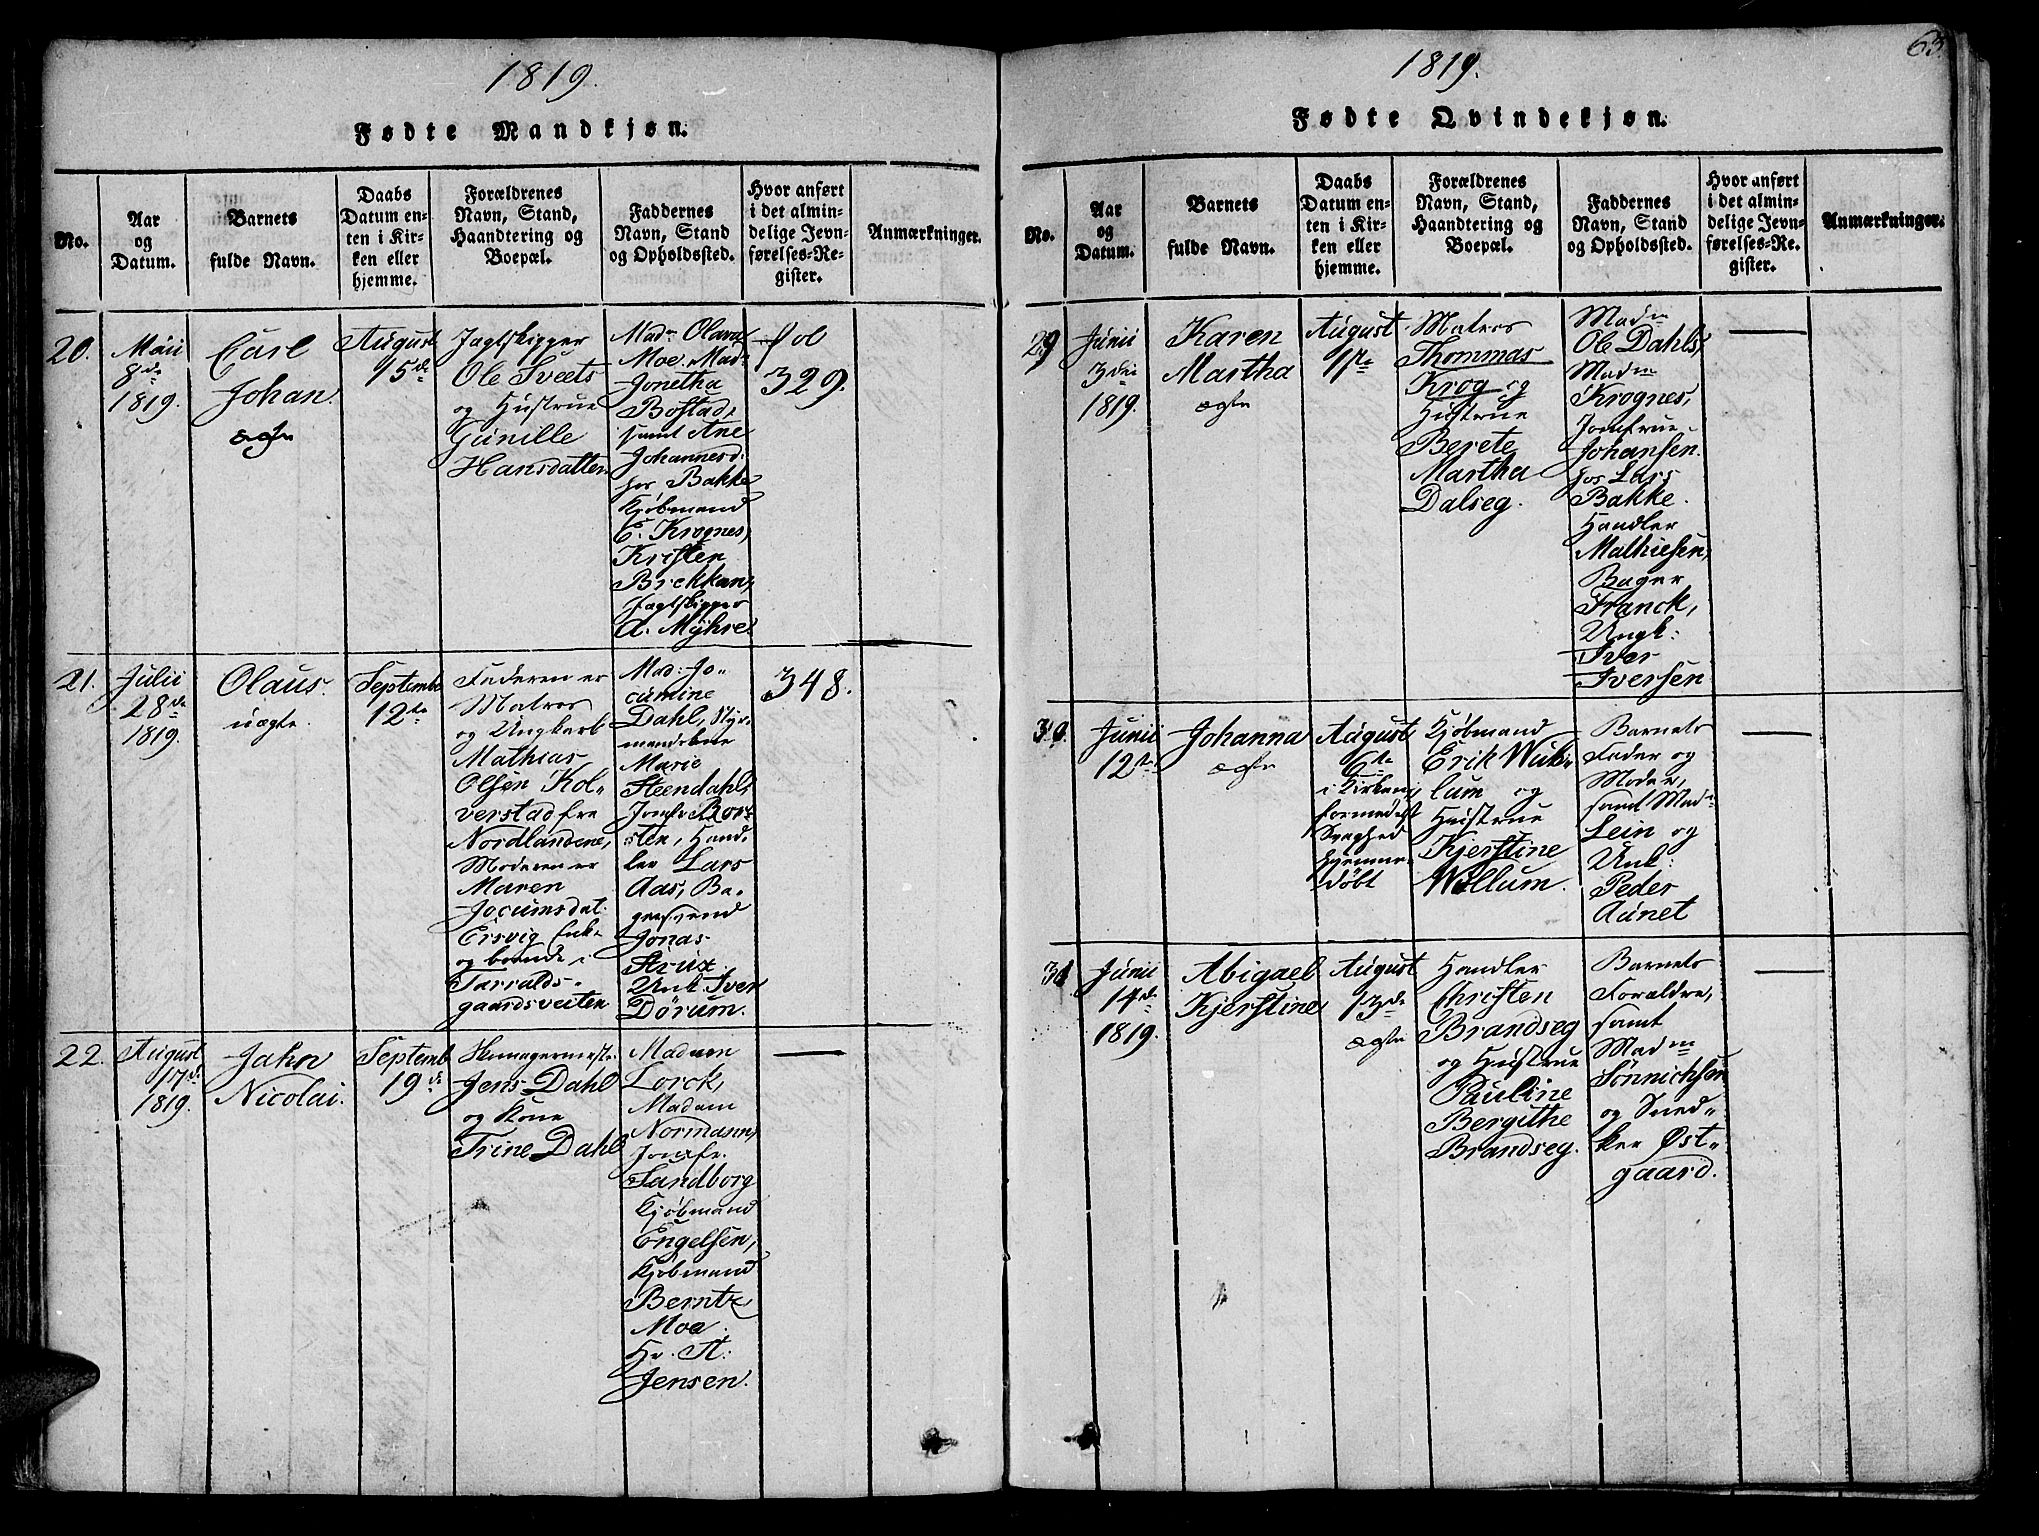 1819.
Fødte Mandkjøn.
No.
Aar
og
Datum.
Barnets
fulde Navn.
Daabs
Datum en-
ten i Kir-
ken eller
hjemme.
Forældrenes
Navn, Stand,
Haandtering og
Boepæl.
Faddernes
Navn, Stand
og Opholdssted.
Hvor anført
i det almin-
delige Jevn-
førelses-Re-
gister.
Anmærkninger.
20.
Maii
8de
1819.
Carl
Johan.
ægte
August
15de
Jagtskipper
Ole Sveets
og Hustrue
Gunille
Hansdatter
Madm Olava
Moe. Mad.
Jonetha
Bostad,
samt Ane
Johannesd:
hos Bakke
Kjøbmand
E. Krognes,
Kristen
Brekkan,
Jagtskipper
A. Myhre.
Fol
329.
21.
Julii
28de
1819.
Olaus.
uægte.
Septemb
12te
Faderen er
Matros
og Ungkarl
Mathias
Olsen Kol-
verstad fra
Nordlandene,
Moderen er
Maren
Jocumsdat.
Ersvig Enke
og boende i
Tarralds-
gaardsveiten
Mad: Jo-
cumine
Dahl, Styr-
mandskone
Marie
Steendahl,
Jomfr. Bor-
sten, Hand-
ler Lars
Aas, Ba-
gersvend
Jonas
Strux,
Unk. Iver
Dørum.
348.
22.
August
17de
1819.
Jahn
Nicolai.
Septemb
19de
Skomagermest.
Jens Dahl
og Kone
Trine Dahl
Madam
Lorck,
Madam
Normann,
Jomfr.
Sandborg
Kjøbmand
Engelsen,
Kjøbmand
Berntz
Moe.
Hr. A:
Jensen.
1819.
63
Fødte Qvindekjøn.
No.
Aar
og
Datum.
Barnets
fulde Navn.
Daabs
Datum en-
ten i Kir-
ken eller
hjemme.
Forældrenes
Navn, Stand,
Haandtering og
Boepæl.
Faddernes
Navn, Stand
og Opholdssted.
Hvor anført
i det almin-
delige Jevn-
førelses-Re-
gister.
Anmærkninger.
29
Junii
3die
1819.
Karen
Martha
ægte
August
1ste
Matros
Thommas
Krog og
Hustrue
Berete
Martha
Dalseg.
Madm
Ole Dahls,
Madm
Krognes,
Jomfrue
Johansen
hos Lars
Bakke.
Handler
Mathiesen,
Bager
Franck,
Ungk:
Iver
Iversen
30.
Junii
12te
Johanna
ægte
August
6te
i Kirken,
formedelst
Svaghed
hjemme-
døbt
Kjøbmand
Erik Wul-
lum og
Hustrue
Kjerstine
Wullum.
Barnets
Fader og
Moder,
samt Mad.
Lein og
Unk:
Peder
Aunet
31
Junii
14de
1819.
Abigael
Kjerstine
August
13de
ægte
Handler
Christen
Brandseg
og Hustrue
Pauline
Bergithe
Brandseg.
Barnets
Forældre,
samt
Madm
Sønnichsen
og Sned-
ker Øst-
gaard.